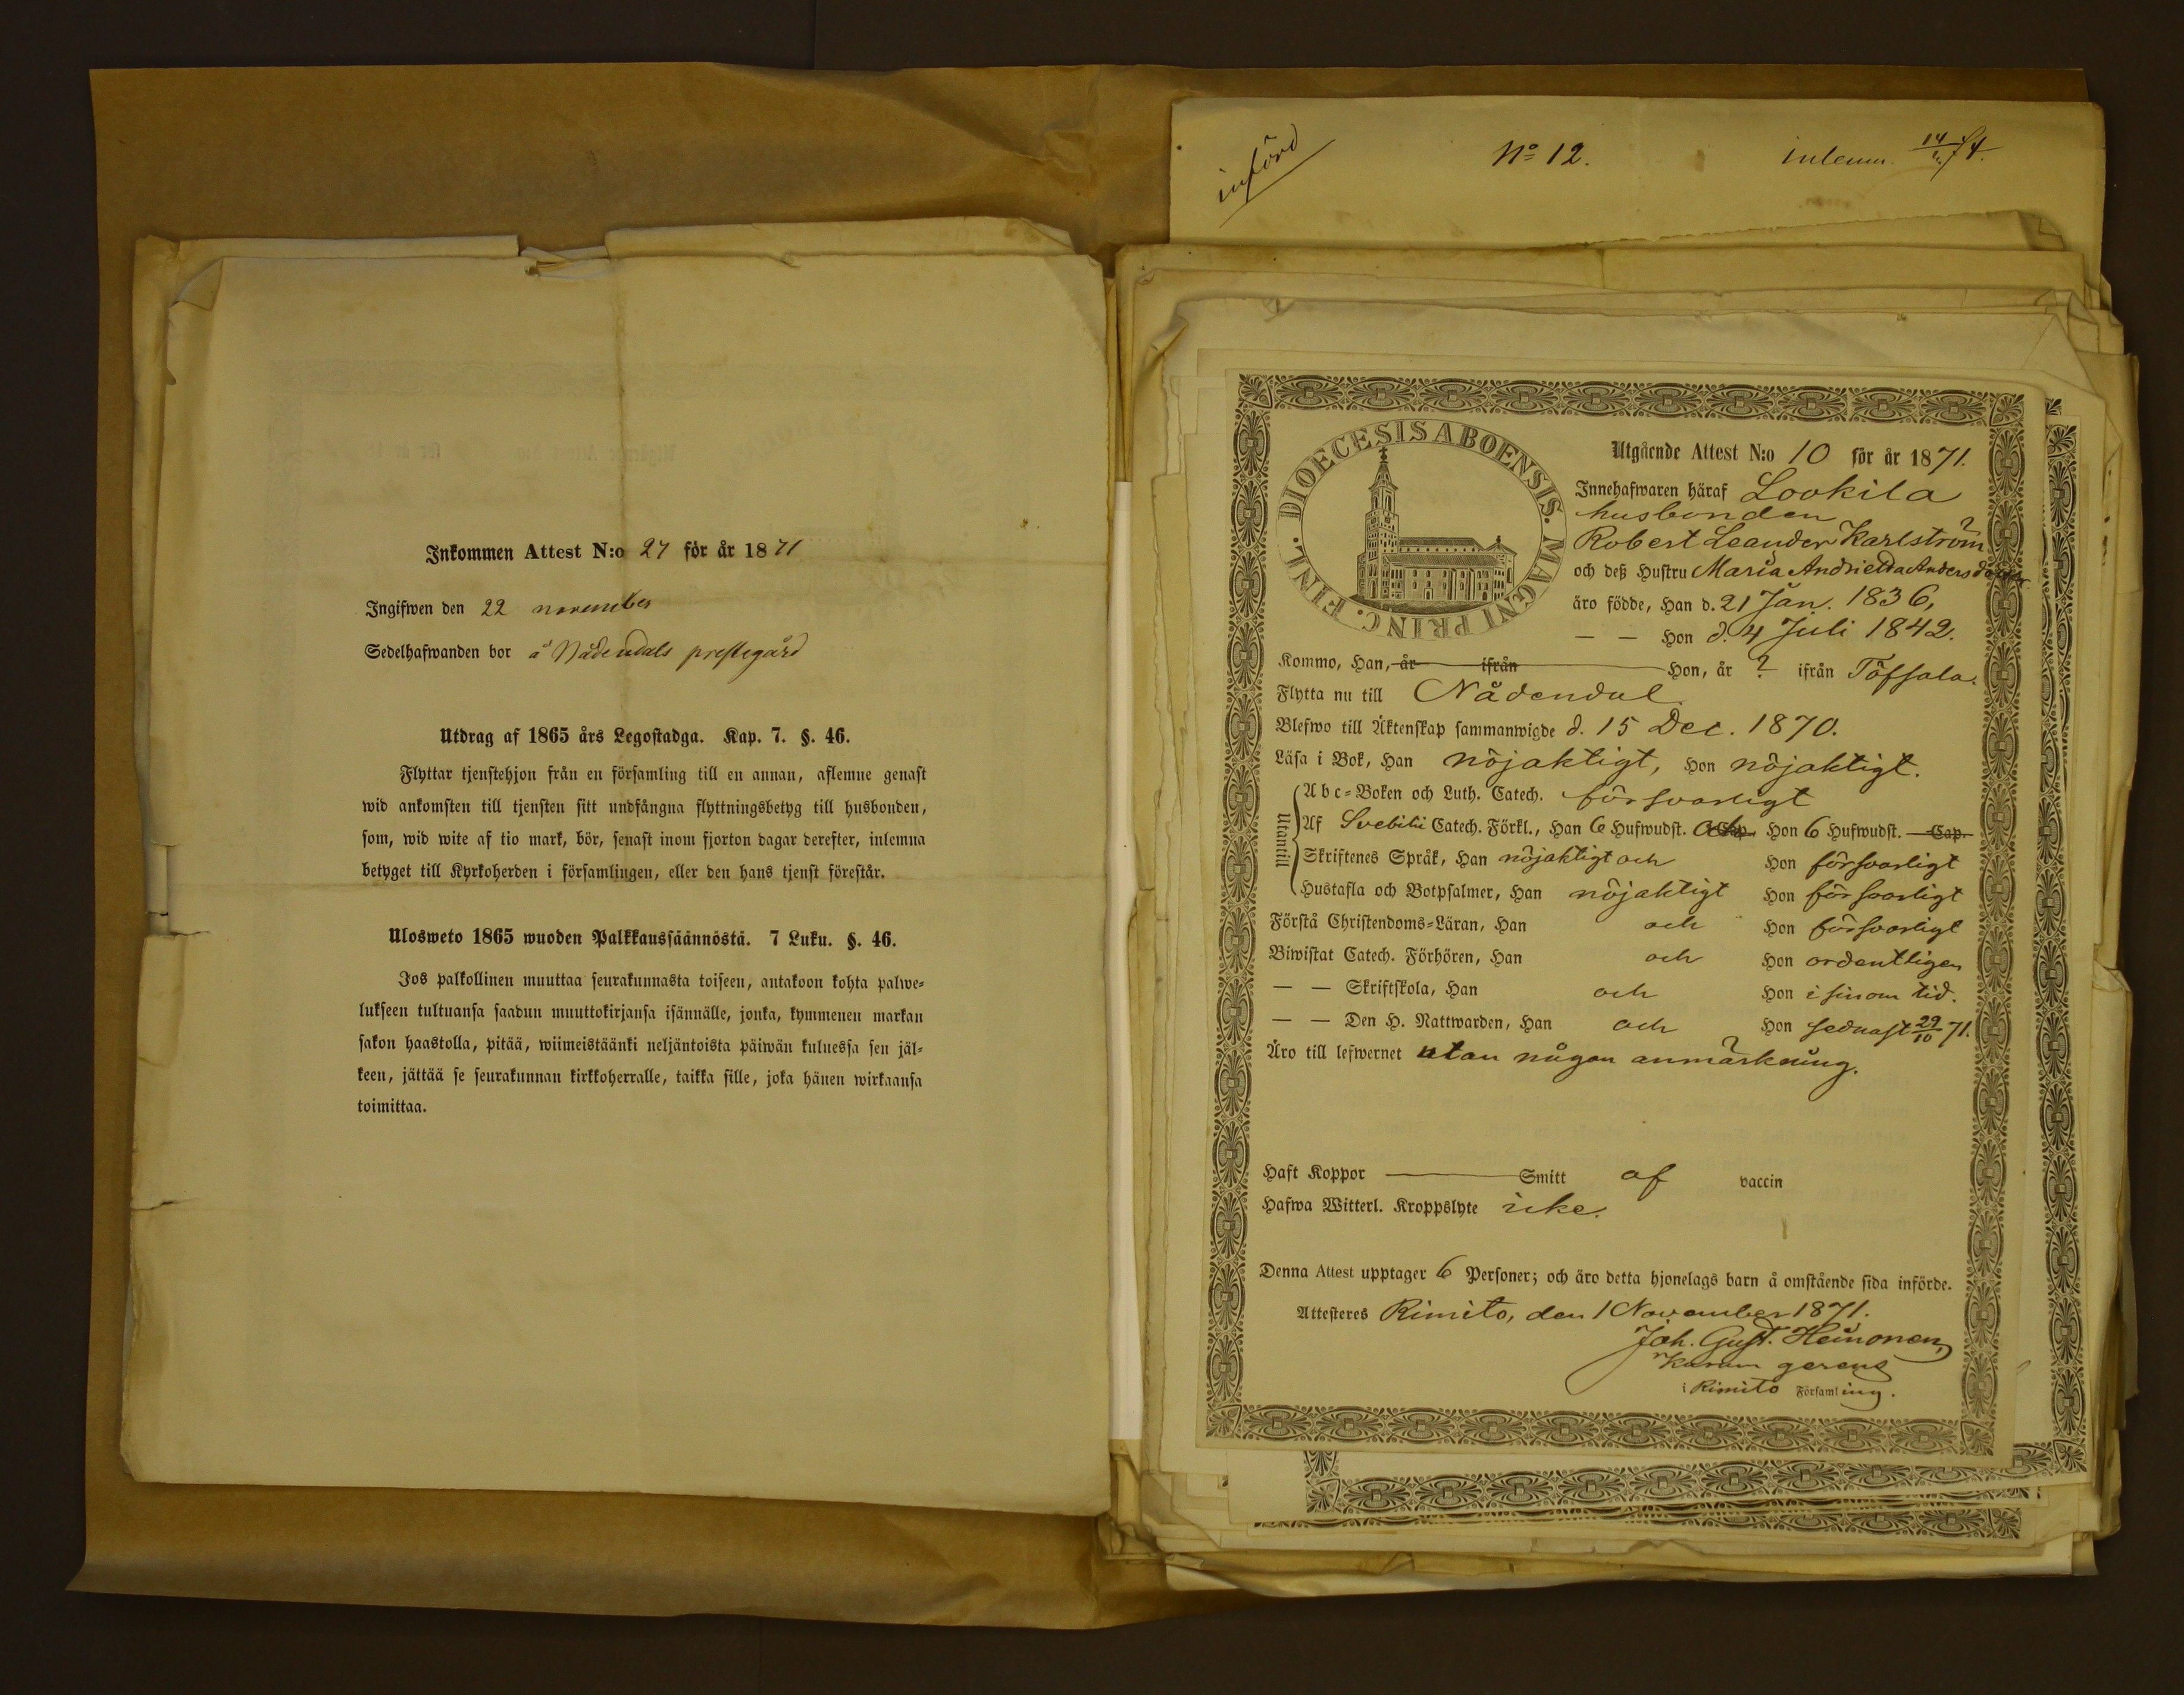 Inkommen Attest N:o 27 för år 1871
Ingifwen den 22 november
Sedelhafwanden bor å Nådendals prestegård
Utdrag af 1865 års Legostadga. Kap. 7. §. 46.
Flyttar tjenstehjon från en församling till en annan, aflemne genast
wid ankomsten till tjensten sitt undfångna flyttningsbetyg till husbonden,
som, wid wite af tio mark, bör, senast inom fjorton dagar derefter, inlemna
betyget till Kyrkoherden i församlingen, eller den hans tjenst förestår.
Ulosweto 1865 wuoden Palkkaussäännöstä. 7 Luku. §. 46.
Jos palkollinen muuttaa seurakunnasta toiseen, antakoon kohta palwe-
lukseen tultuansa saadun muuttokirjansa isännälle, jonka, kymmenen markan
sakon haastolla, pitää, wiimeistäänki neljäntoista päiwän kuluessa sen jäl-
keen, jättää se seurakunnan kirkkoherralle, taikka sille, joka hänen wirkaansa
toimittaa.
införd
No 12.
inlemn. 74.
DIOECESIS ABOENSIS. MAGNI PRINC. FINL.
Utgående Attest N:o 10 för år 1871.
Innehafwaren häraf Lookila
husbonden
Robert Leander Karlström
och deß Hustru Maria Andrietta Andersdotter
äro födde, Han d. 21 Jan. 1836,
— — Hon d. 4 Juli 1842.
Kommo, Han, år ifrån Hon, år ? ifrån Töfsala.
Flytta nu till Nådendal
Blefwo till Äktenskap sammanwigde d. 15 Dec. 1870.
Läsa i Bok, Han nöjaktigt, Hon nöjaktigt.
Utantill
Abc-Boken och Luth. Catech. försvarligt
Af Svebilii Catech. Förkl., Han 6 Hufwudst. och Hon 6 Hufwudst. Cap.
Skriftenes Språk, Han nöjaktigt och Hon försvarligt
Hustafla och Botpsalmer, Han nöjaktigt Hon försvarligt
Förstå Christendoms-Läran, Han och Hon försvarligt
Biwistat Catech. Förhören, Han och Hon ordentligen
— — Skriftskola, Han och Hon i sinom tid.
— — Den H. Nattwarden, Han och Hon sednast 29/10 71.
Äro till lefwernet utan någon anmärkning.
Haft Koppor Smitt af vaccin
Hafwa Witterl. Kroppslyte icke.
Denna Attest upptager 6 Personer; och äro detta hjonelags barn å omstående sida införde.
Attesteres Rimito, den 1 November 1871.
Joh. Gust. Heinonen,
kuram gerens
i Rimito Församling.